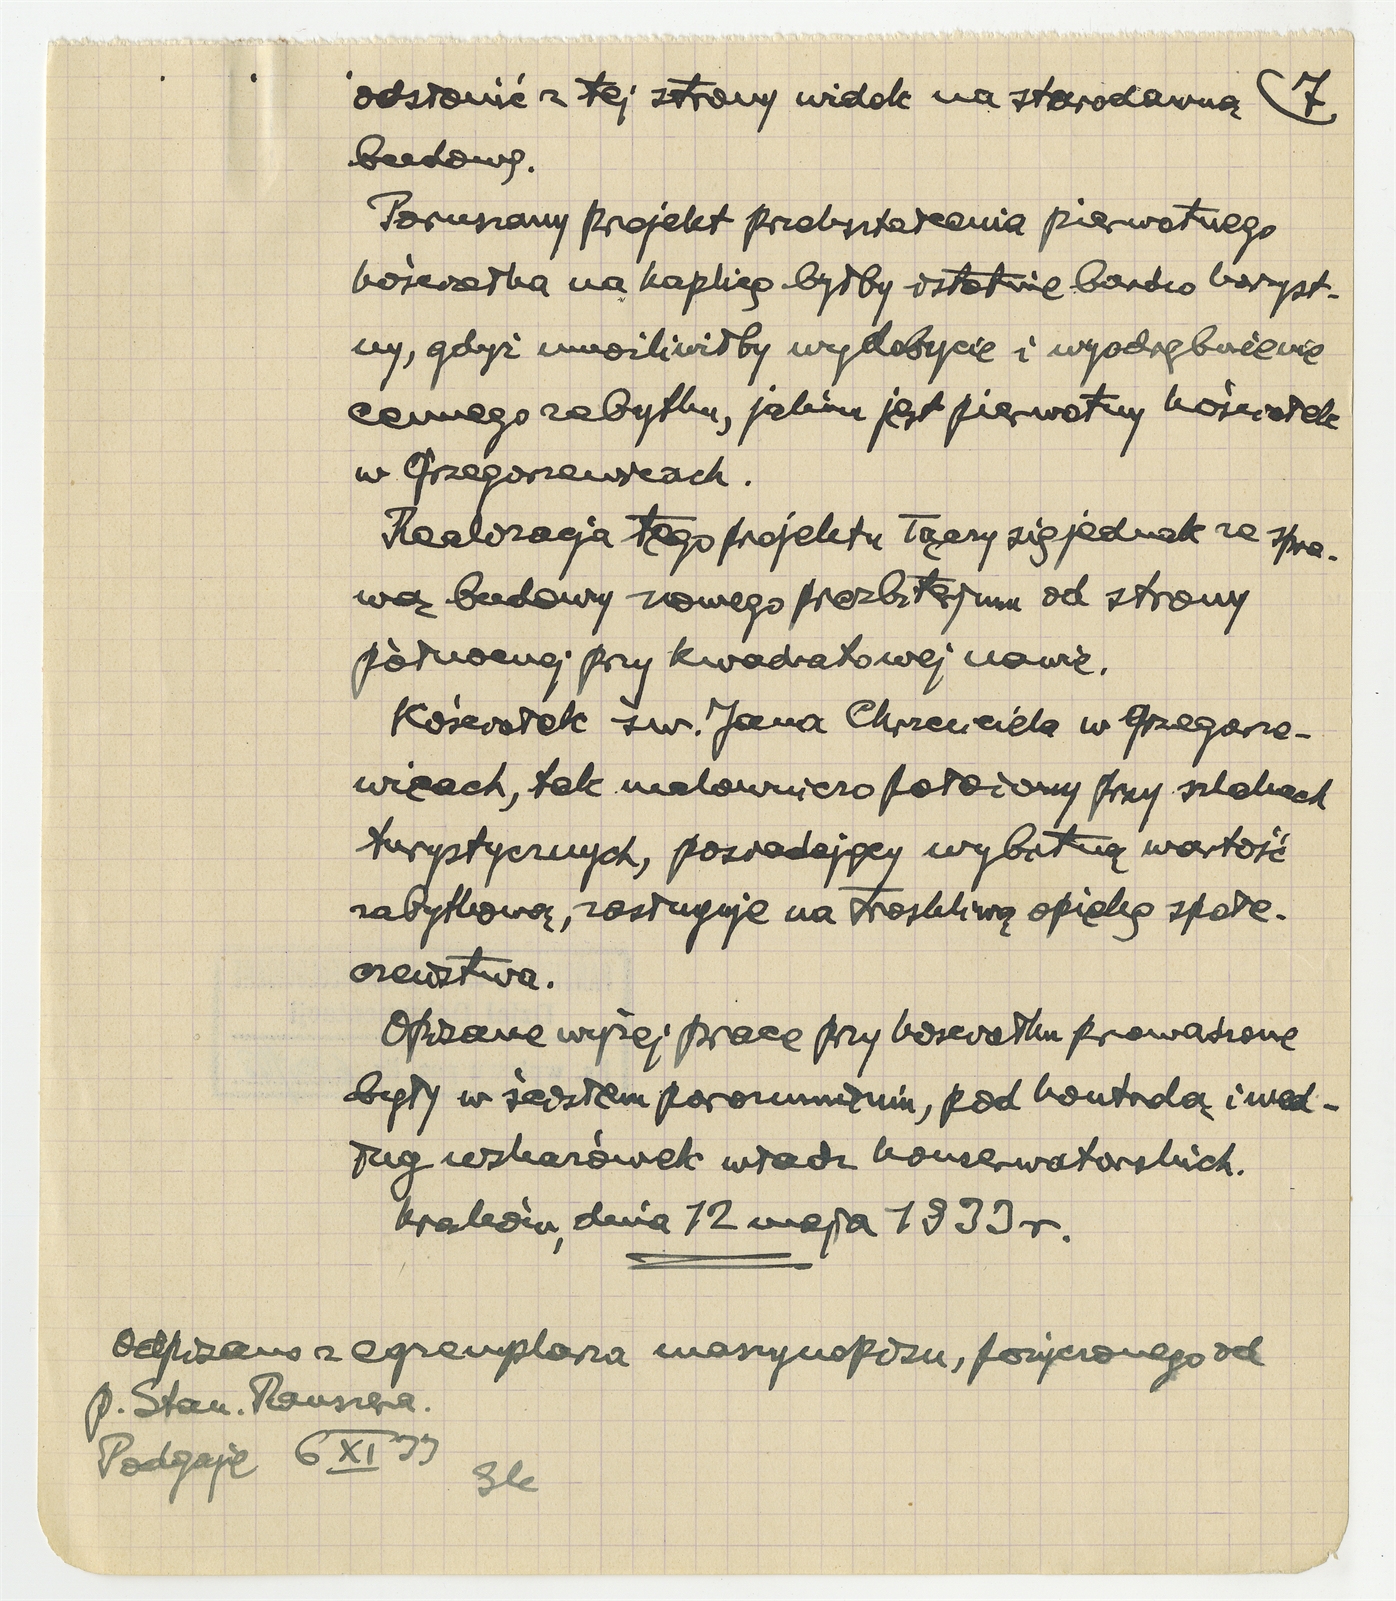 odsłonić z tej strony widok na starodawną (7
budowę.
Poruszany projekt przekształcenia pierwotnego
kościołka na kaplicę byłby istotnie bardzo korzyst-
ny, gdyż umożliwiłby wydobycie i wyodrębnienie
cennego zabytku, jakim jest pierwotny kościołek
w Grzegorzewicach.
Realizacja tego projektu łączy się jednak ze spra-
wą budowy nowego prezbiterjum od strony
północnej przy kwadratowej nawie.
Kościołek św. Jana Chrzciciela w Grzegorze-
wicach, tak malowniczo położony przy szlakach
turystycznych, posiadający wybitną wartość
zabytkową, zasługuje na troskliwą opiekę społe-
czeństwa.
Opisane wyżej prace przy kościołku prowadzone
były w ścisłem porozumieniu, pod kontrolą i wed-
ług wskazówek władz konserwatorskich.
Kraków, dnia 12 maja 1933 r.
Odpisano z egzemplarza maszynopisu, pożyczonego od
p. Stan.
Podgaje 6 XI 33